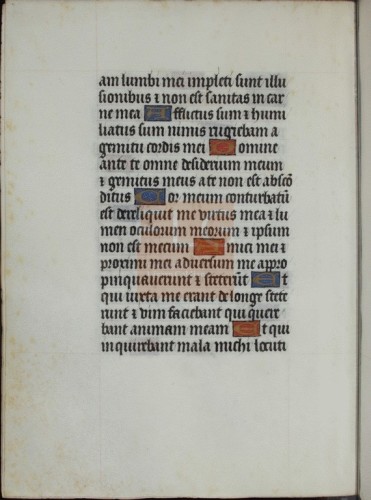 am lumbi mei impleti sunt illu
sionibus ⁊ non est sanitas in car
ne mea Afflictus sum ⁊ humi
liatus sum nimis rugiebam a
gemitu cordis mei Domine
ante te omne desiderium meum
⁊ gemitus meus a te non est abscō
ditus Cor meum conturbatū
est dereliquit me virtus mea ⁊ lu
men oculorum meorum ⁊ ipsum
non est mecum Amici mei ⁊
proximi mei adversum me appro
pinquaverunt ⁊ steterūt Et
qui iuxta me erant de longe stete
runt ⁊ vim faciebant qui quere
bant animam meam Et qui
inquirebant mala michi locuti